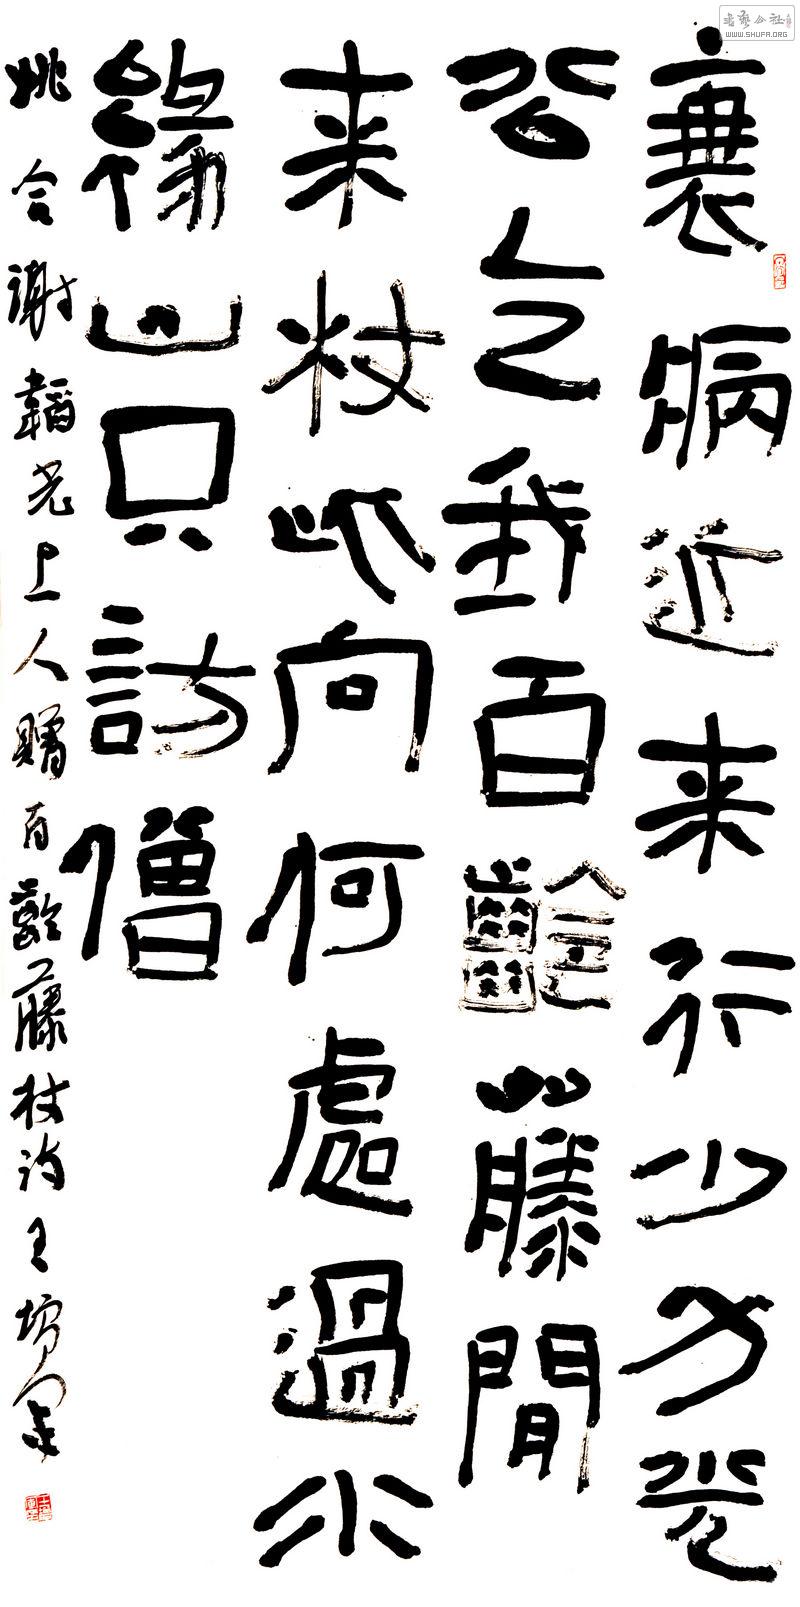 衰病近来行少力光
公乞我百齡藤閒
来杖此向何處過水
緣山只訪僧
姚合謝韜光上人贈百齡藤杖詩王
书艺公社
WWW.SHUFA.ORG